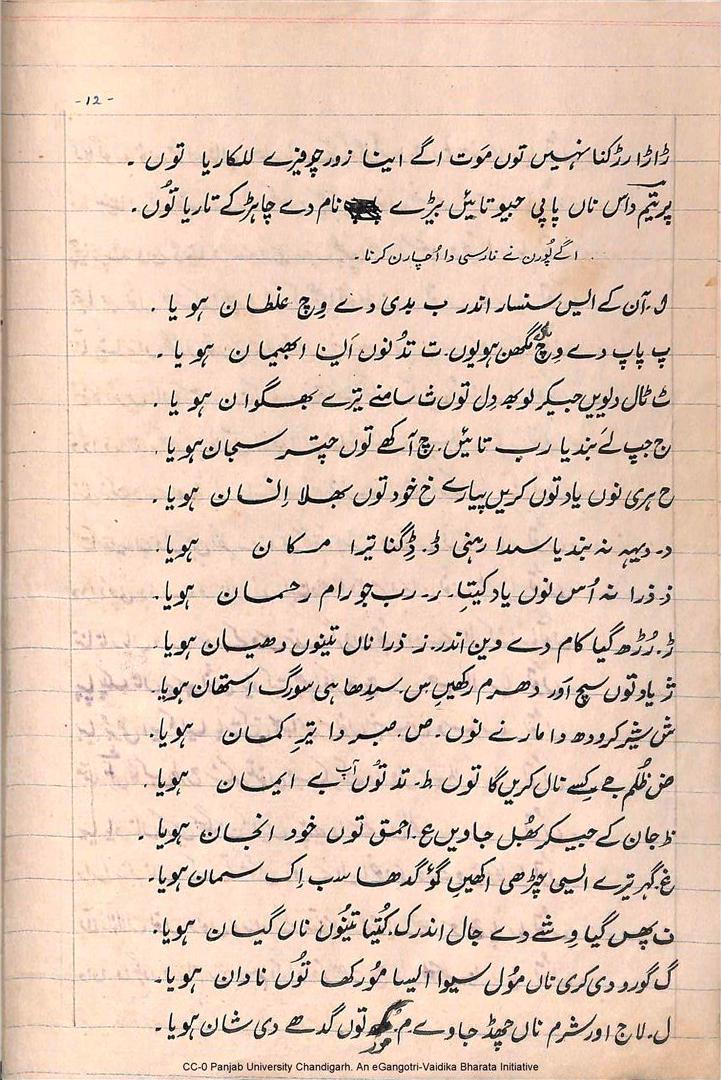 -12-
ڑاڑا رڑکنا نہیں توں موت اگے اینا زور چوفیرے للکاریا توں ۔
پریتم داس ناں پاپی جیو تائیں بیڑے نام دے چاہڑ کے تاریا توُں ۔
اگے پُورن نے فارسی دا اُچارن کرنا ۔
ا۔ آن کے ایس سنسار اندر ب بدی دے وِچ غلطان ہویا ۔
پ پاپ دے وچ مگھن ہویوں۔ ت تدُنوں اَینا ابھیمان ہویا ۔
ٹ ٹال دلویں جیکر لوبھ دِل توں ث سامنے تیرے بھگوان ہویا ۔
ج جپ لَے بندیا رب تائیں۔ چ آکھے توں چتر سجان ہویا ۔
ح ہری نوں یاد توں کریں پیارے خ خود توں بھلا اِنسان ہویا ۔
د۔ دیہہ نہ بندیا سدا رہنی ڈ۔ ڈِگنا تیرا مکان ہویا۔
ذ ذرا نہ اُس نوں یاد کیتا۔ ر۔ رب جو رام رحمان ہویا۔
ڑ۔ رُڑھ گیا کام دے وین اندر۔ ز ذرا ناں تینوں دھیان ہویا۔
ژ یاد توں سچ اَور دھرم رکھیں س۔ سِدھا ہی سورگ استھان ہویا۔
ش شیر کرودھ دا مارنے نوں۔ ص۔ صبر دا تیر کمان ہویا۔
ض ظُلم جے کِسے نال کریں گا توں ط۔ تد توُں آپ بے ایمان ہویا ۔
ظ جان کے جیکر بھُل جاویں ع۔ احمق توں خود انجان ہویا ۔
غ۔ گہر تیرے ایسی چڑھی اکھیں گؤ گدھا سب اِک سمان ہویا۔
ف پھس گیا وِشے دے جال اندر ک۔ کُتیا تینُوں ناں گیان ہویا۔
گ گورو دی کری ناں مُول سیوا ایسا مُورکھا توُں نادان ہویا۔
ل۔ لاج اور شرم ناں چھڈ جاوے م۔ توں گدھے دی شان ہویا۔
CC-0 Panjab University Chandigarh. An eGangotri-Vaidika Bharata Initiative